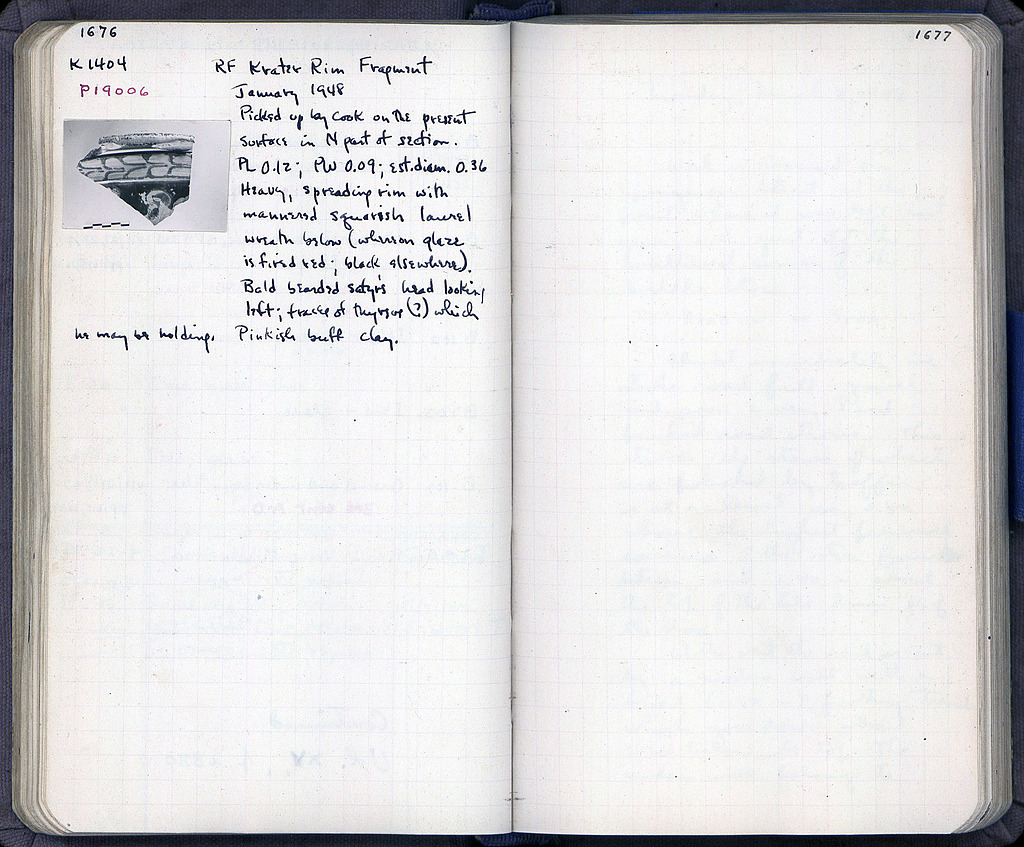 1676
K 1404
RF Krater Rim Fragment
P19006
January 1948
Picked up by cook on the present
surface in N part of section.
PL 0.12; PW 0.09; est. diam. 0.36
Heavy, spreading rim with
mannered squarish laurel
wreath below (whereon glaze
is fired red; black elsewhere).
Bald bearded satyr's head looking
left; traces of thyrsos (?) which
he may be holding. Pinkish buff clay.
1677